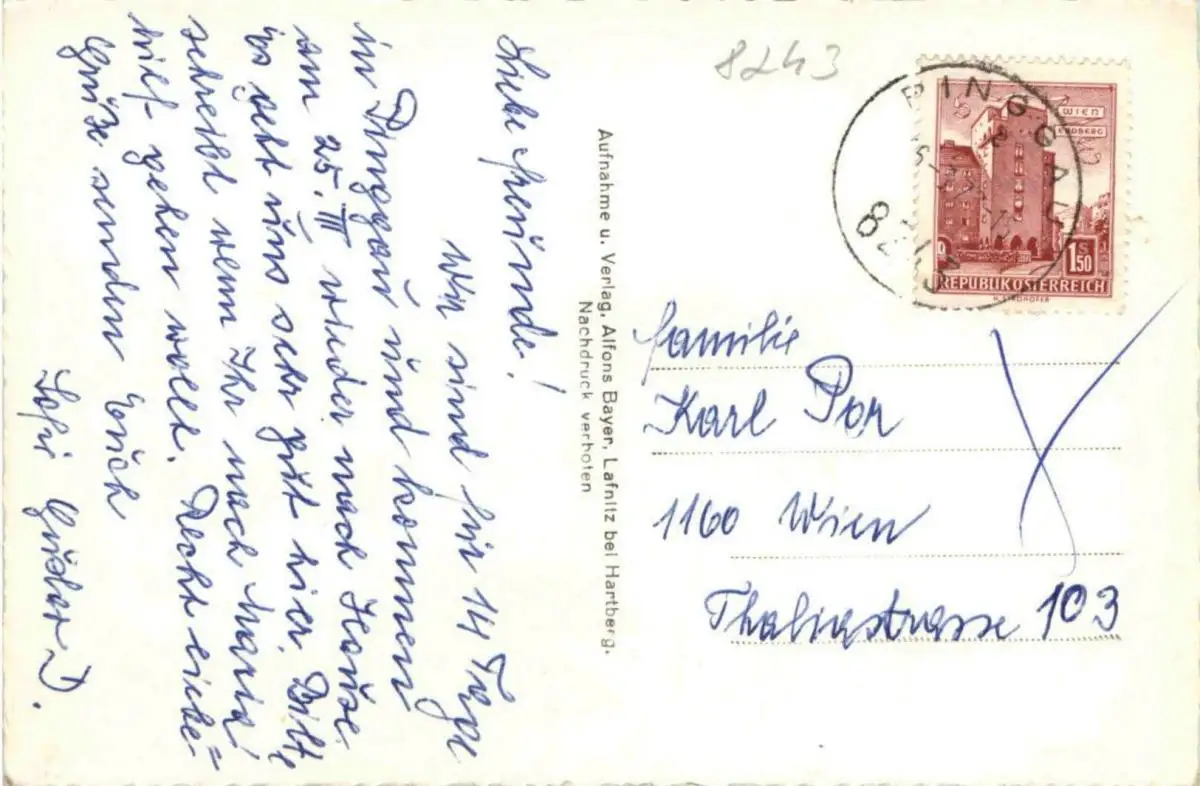 Liebe Freunde!
Wir sind für 14 Tage
in Pinggau und kommen
am 25. III wieder nach Hause
Es geht uns sehr gut hier. Bitte
schreibt wenn Ihr nach Maria
hilf gehen wollt. Recht liebe=
Grüße senden Euch
D.
Aufnahme u. Verlag, Alfons Bayer, Lafnitz bei Hartberg.
Nachdruck verboten
8243
PINGGAU
8243
WIEN
ERDBERG
1S50
REPUBLIK ÖSTERREICH
Familie
Karl Por
1160 Wien
Thaliastrasse 103